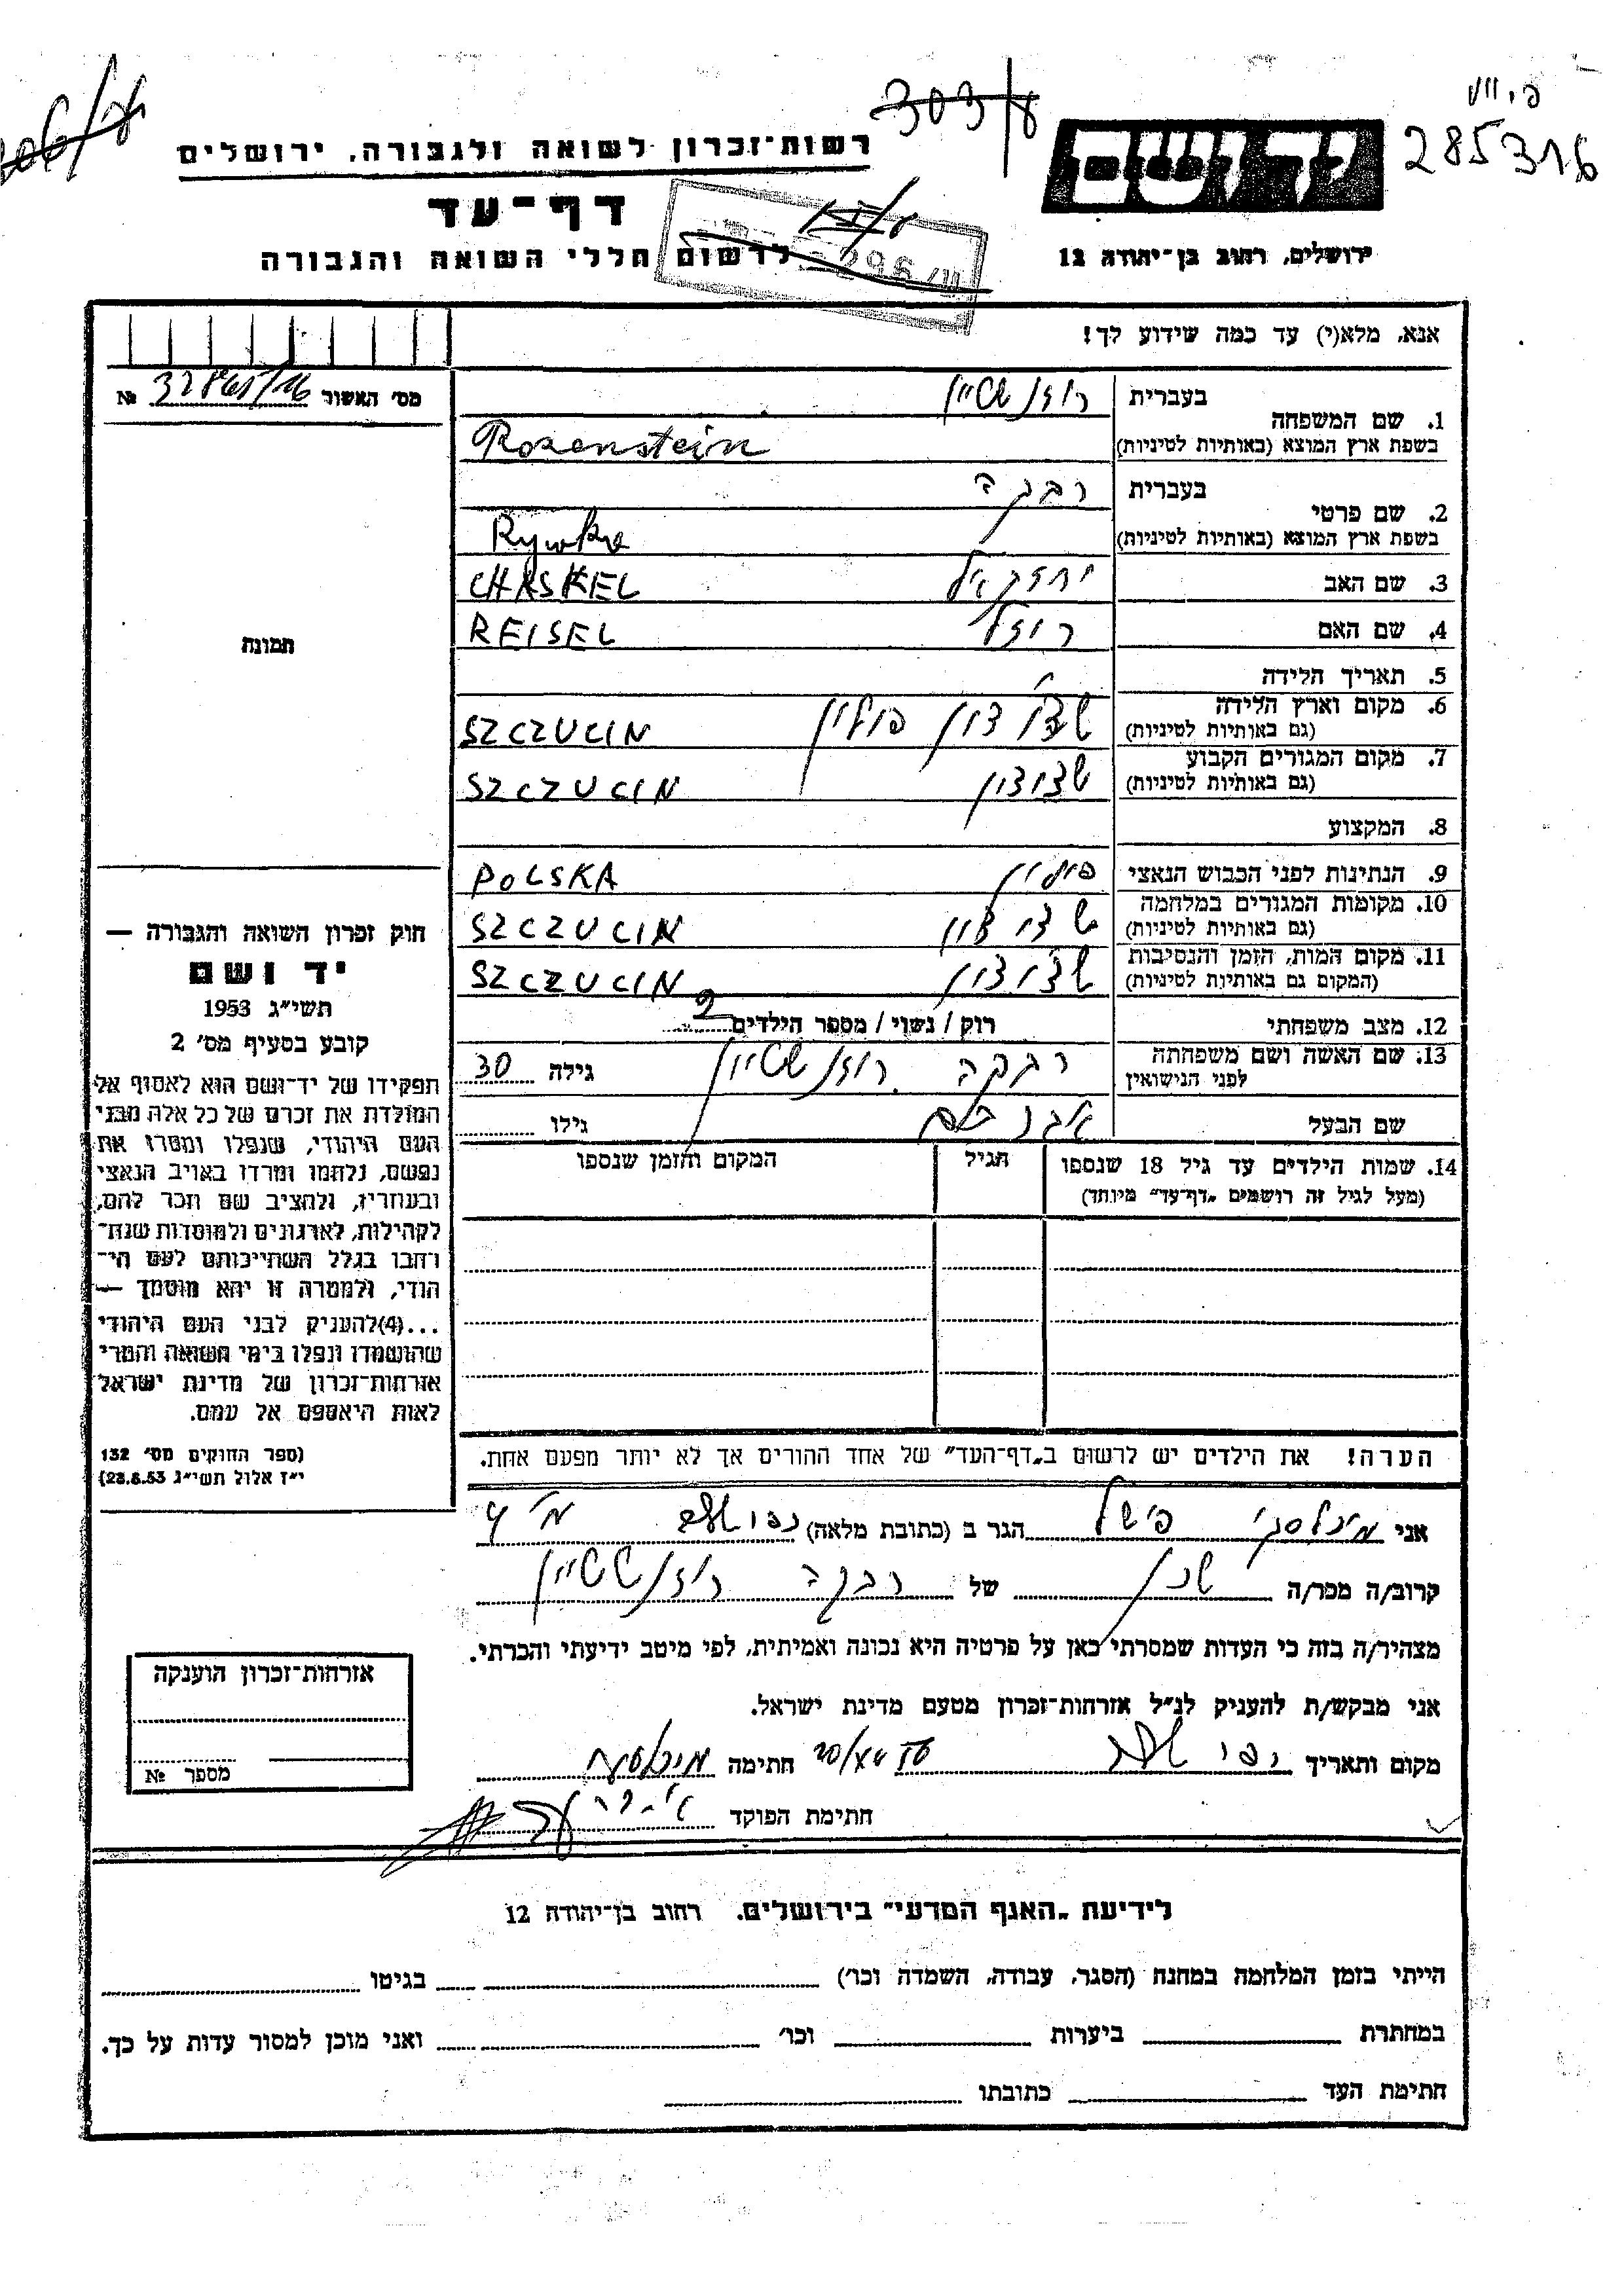 פ. ווי
285316
303/ע
רשות־זכרון לשואה ולגבורה, ירושלים
דף־עד
לרשום חללי השואה והגבורה
יד ושם
ירושלים, רחוב בן־יהודה 12
אנא, מלא(י) עד כמה שידוע לך!
מס' האשור №
1. שם המשפחה בעברית רוזנשטיין
בשפת ארץ המוצא (באותיות לטיניות) Rozenstein
2. שם פרטי בעברית רבקה
בשפת ארץ המוצא (באותיות לטיניות) Rywka
3. שם האב יחזקאל CHASKEL
4. שם האם רוזל REISEL
5. תאריך הלידה
6. מקום וארץ הלידה
(גם באותיות לטיניות) שצוצין פולין SZCZUCIN
7. מקום המגורים הקבוע
(גם באותיות לטיניות) שצוצין SZCZUCIN
8. המקצוע
9. הנתינות לפני הכבוש הנאצי פולין POLSKA
10. מקומות המגורים במלחמה
(גם באותיות לטיניות) שצוצין SZCZUCIN
11. מקום המות, הזמן והנסיבות
(המקום גם באותיות לטיניות) שצוצין SZCZUCIN
12. מצב משפחתי רוק / נשוי / מספר הילדים 2
13. שם האשה ושם משפחתה
לפני הנישואין רבקה רוזנשטיין גילה 30
שם הבעל גילו
14. שמות הילדים עד גיל 18 שנספו הגיל המקום והזמן שנספו
(מעל לגיל זה רושמים „דף־עד" מיוחד)
הערה! את הילדים יש לרשום ב„דף־העד" של אחד ההורים אך לא יותר מפעם אחת.
תמונה
חוק זכרון השואה והגבורה —
יד ושם
תשי"ג 1953
קובע בסעיף מס' 2
תפקידו של יד־ושם הוא לאסוף אל
המולדת את זכרם של כל אלה מבני
העם היהודי, שנפלו ומסרו את
נפשם, נלחמו ומרדו באויב הנאצי
ובעוזריו, ולהציב שם וזכר להם,
לקהילות, לארגונים ולמוסדות שנח־
רחבו בגלל השתייכותם לעם הי־
הודי, ולמטרה זו יהא מוסמך —
...(4)להעניק לבני העם היהודי
שהושמדו ונפלו בימי השואה והמרי
אזרחות־זכרון של מדינת ישראל
לאות היאספם אל עמם.
(ספר החוקים מס' 132
י"ז אלול תשי"ג 28.8.53)
אני פישל הגר ב (כתובת מלאה)
קרוב/ה מכר/ה שכן של רבקה רוזנשטיין
מצהיר/ה בזה כי העדות שמסרתי כאן על פרטיה היא נכונה ואמיתית, לפי מיטב ידיעתי והכרתי.
אני מבקש/ת להעניק לנ"ל אזרחות־זכרון מטעם מדינת ישראל.
מקום ותאריך חתימה
חתימת הפוקד
אזרחות־זכרון הוענקה
מספר №
לידיעת „האגף המדעי" בירושלים. רחוב בן־יהודה 12
הייתי בזמן המלחמה במחנה (הסגר, עבודה, השמדה וכו') בגיטו
במחתרת ביערות וכו' ואני מוכן למסור עדות על כך.
חתימת העד כתובתו